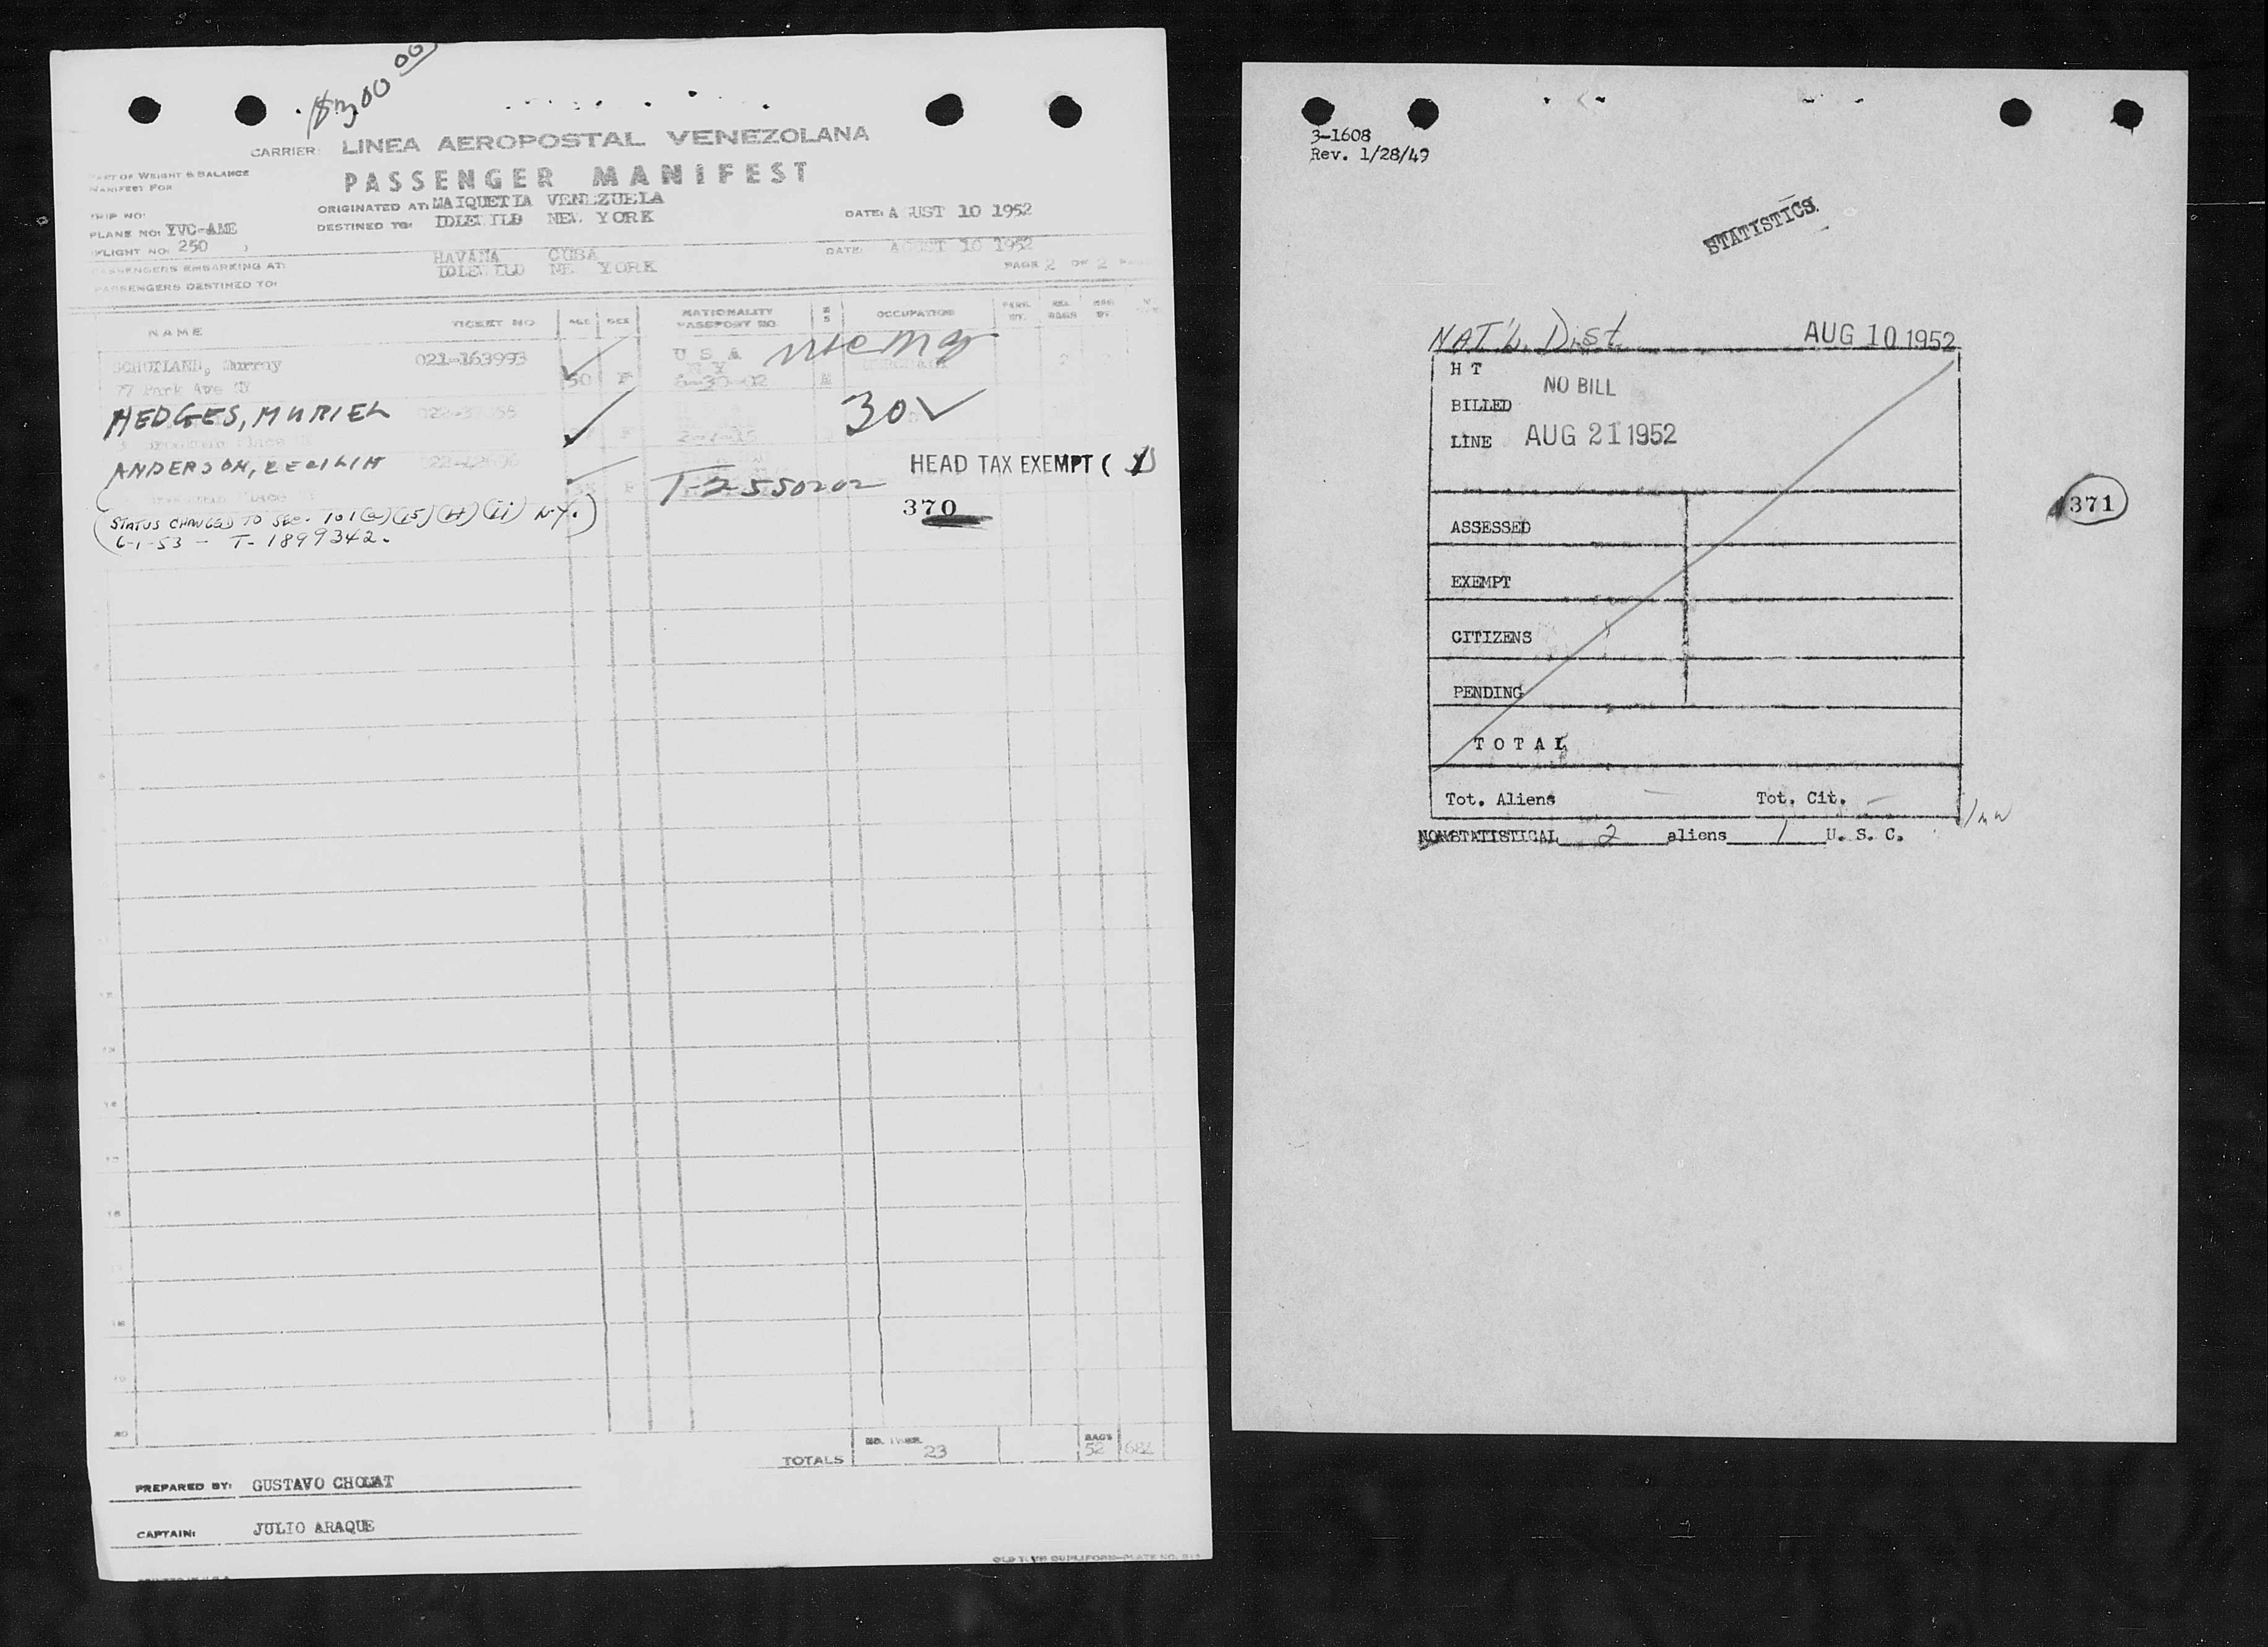 $300 00
CARRIER: LINEA AEROPOSTAL VENEZOLANA
PART OF WEIGHT & BALANCE
MANIFEST FOR
PASSENGER MANIFEST
TRIP NO:
ORIGINATED AT: MAIQUETIA VENEZUELA
DATE: A UST 10 1952
PLANE NO: YVC-AME
DESTINED TO: IDLEWILD NEW YORK
FLIGHT NO: 250
PASSENGERS EMBARKING AT: HAVANA CUBA
DATE: AUGUST 10 1952
PASSENGERS DESTINED TO: IDLEWILD NEW YORK
PAGE 2 OF 2
NAME TICKET NO AGE SEX NATIONALITY PASSPORT NO. OCCUPATION
SCHUTLAND, Murray 021-163993 U S A
77 Park Ave NY 50 F 6-30-02 M
HEDGES, MURIEL 30✓
ANDERSON, CECILIA HEAD TAX EXEMPT ( 1 )
T-2550202
370
(STATUS CHANGED TO SEC. 101(a)(15)(H)(ii) N.Y.)
6-1-53 - T-1899342.
20
TOTALS 23 BAGS 52
PREPARED BY: GUSTAVO CHOLAT
CAPTAIN: JULIO ARAQUE
3-1608
Rev. 1/28/49
STATISTICS
NAT'L. Dist. AUG 10 1952
H T
NO BILL
BILLED
LINE AUG 21 1952
371
ASSESSED
EXEMPT
CITIZENS
PENDING
TOTAL
Tot. Aliens — Tot. Cit. —
NONSTATISTICAL 2 aliens 1 U. S. C.